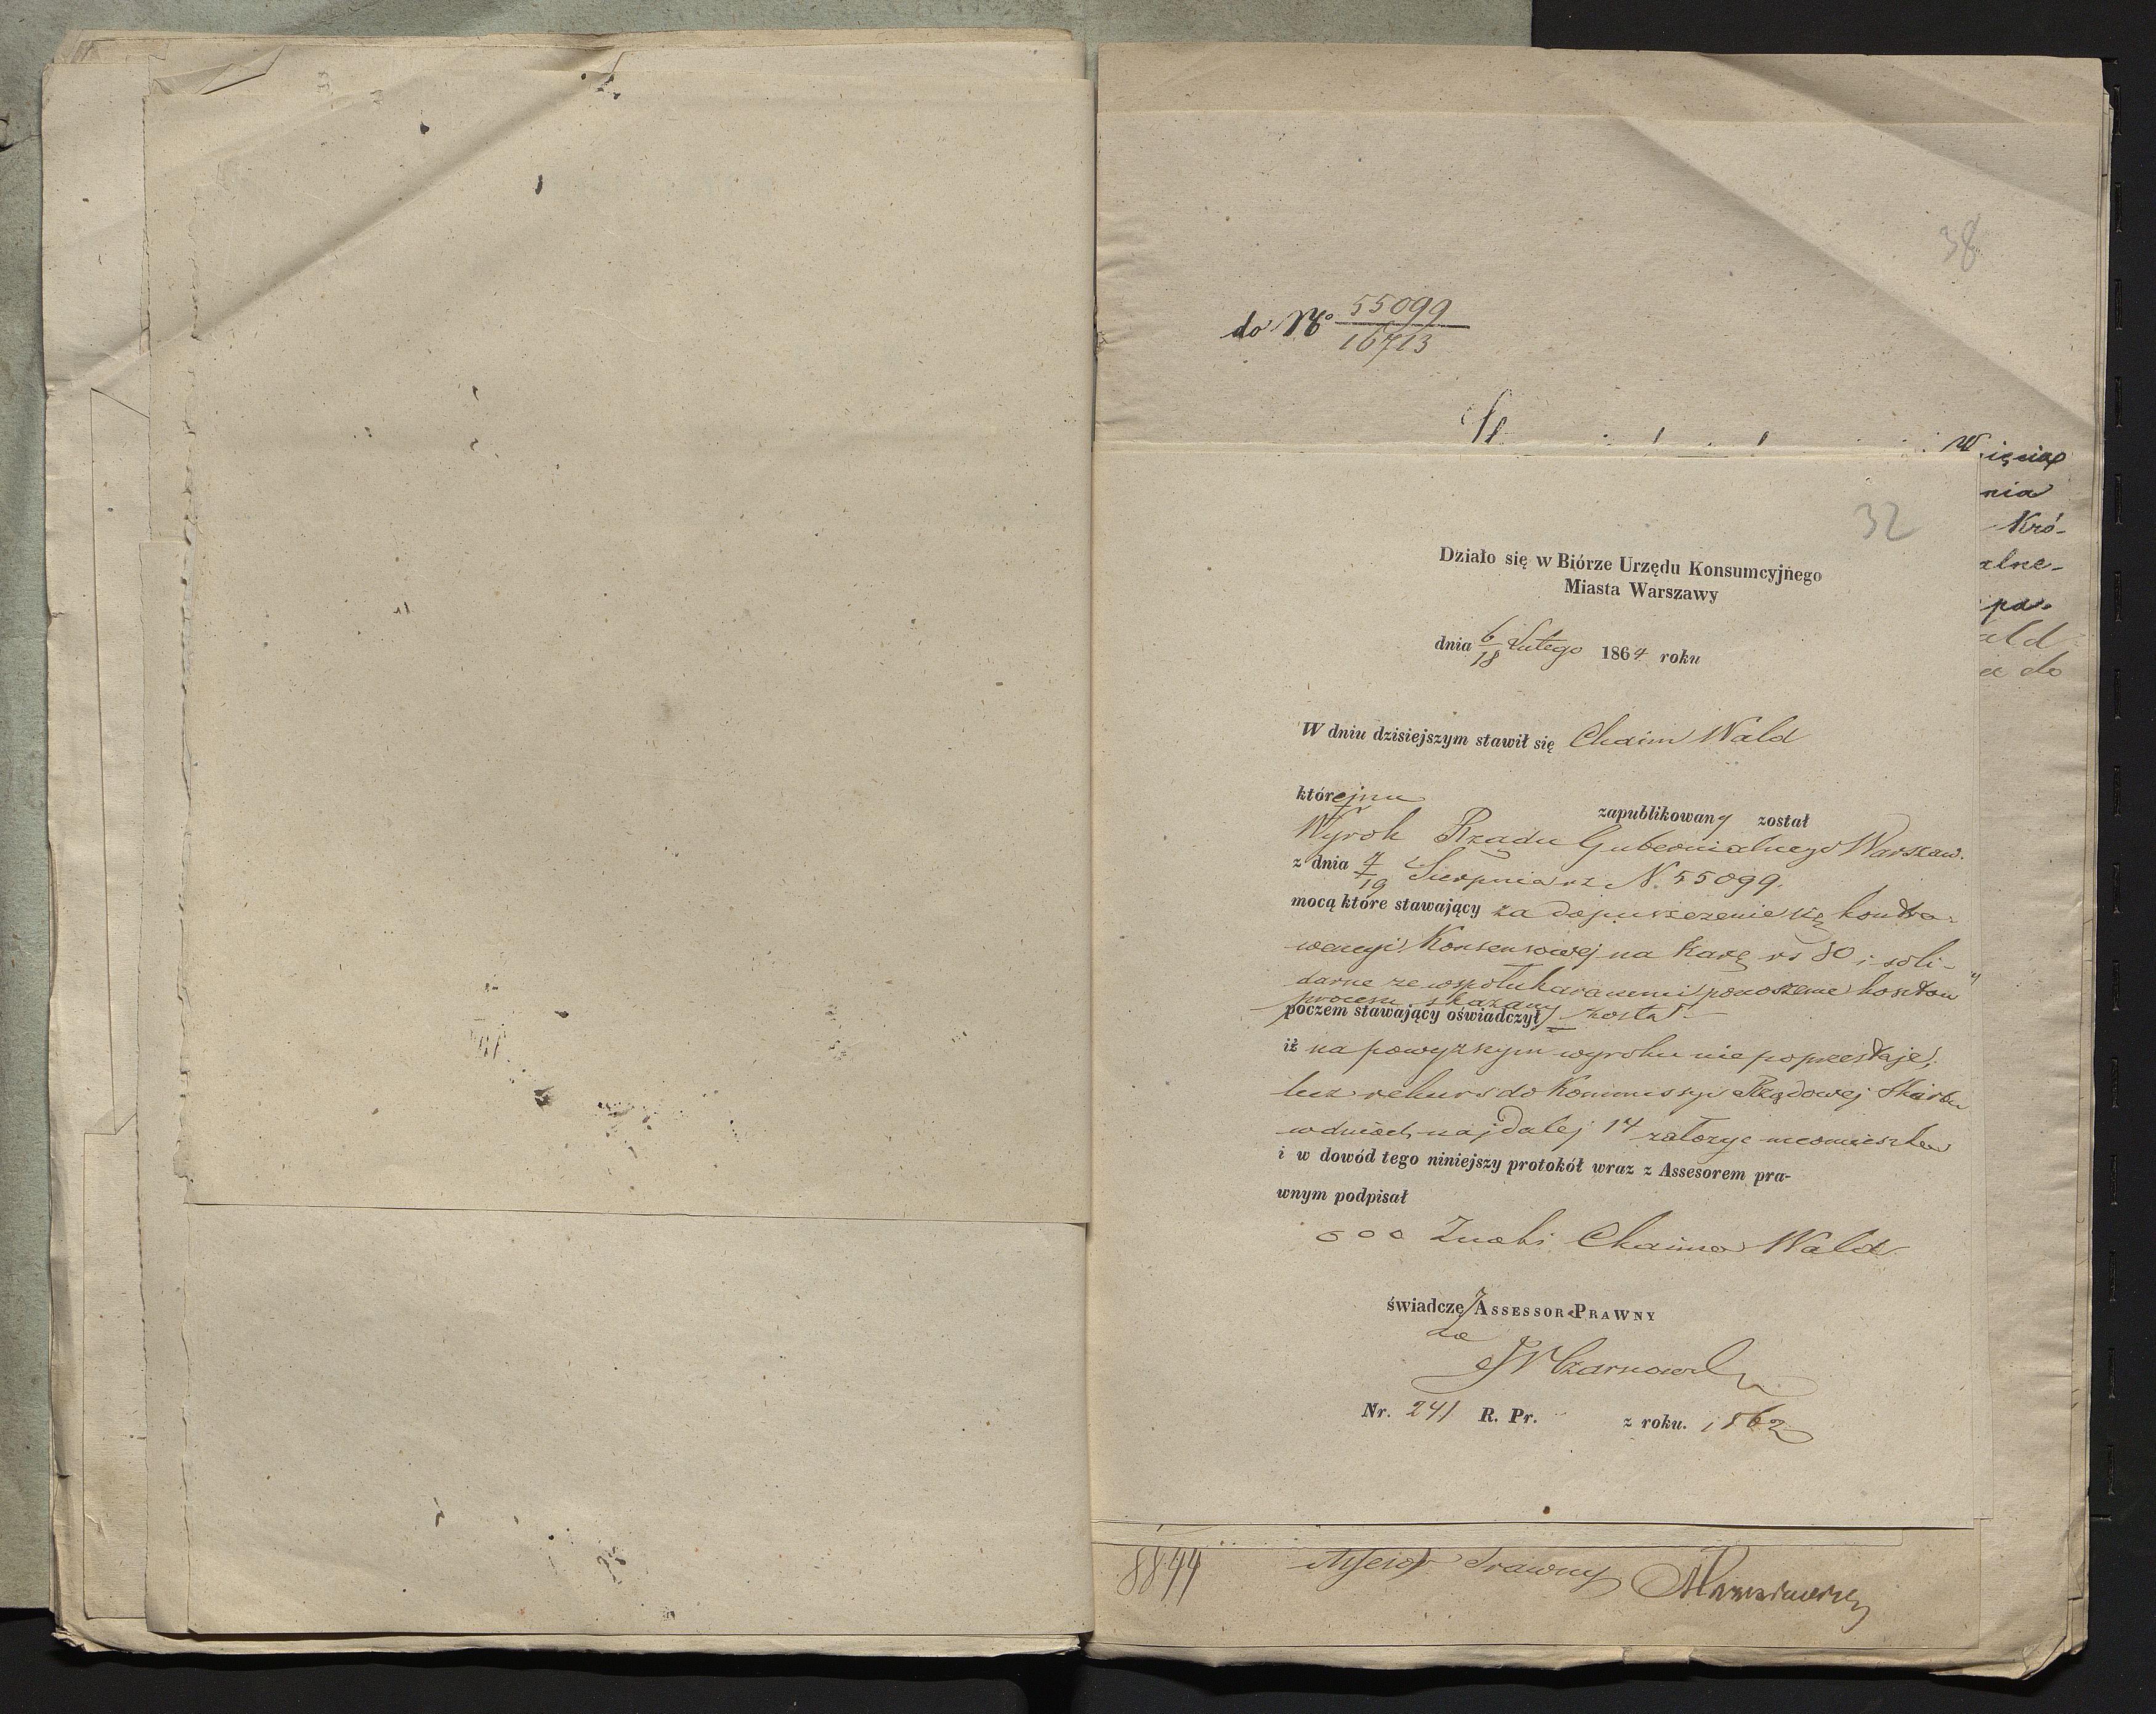 38
do No 55099
16713
Więnia
nia
Kró-
alne-
pa-
ald
a do
32
Działo się w Biórze Urzędu Konsumcyjnego
Miasta Warszawy
dnia 6/18 Lutego 1864 roku
W dniu dzisiejszym stawił się Chaim Wald
któremu
zapublikowany został
Wyrok Rządu Gubernialnego Warszaw.
z dnia 7/19 Sierpnia rz N. 55099.
mocą które stawający za dopuszczenie się kontra-
wencyi Konsensowej na karę rs 30 i soli-
darne ze współukaranemi ponoszenie kosztów
procesu skazany
poczem stawający oświadczył został
iż na powyższym wyroku nie poprzestaje,
lecz rekurs do Kommissyi Rządowej Skarbu
w dniach najdalej 14 założyć nieomieszka
i w dowód tego niniejszy protokół wraz z Assesorem pra-
wnym podpisał
o o o Znaki Chaima Wald
świadczę Assessor Prawny
za
Czarnowski
Nr. 241 R. Pr. z roku. 1862
8844 Assesor Prawny